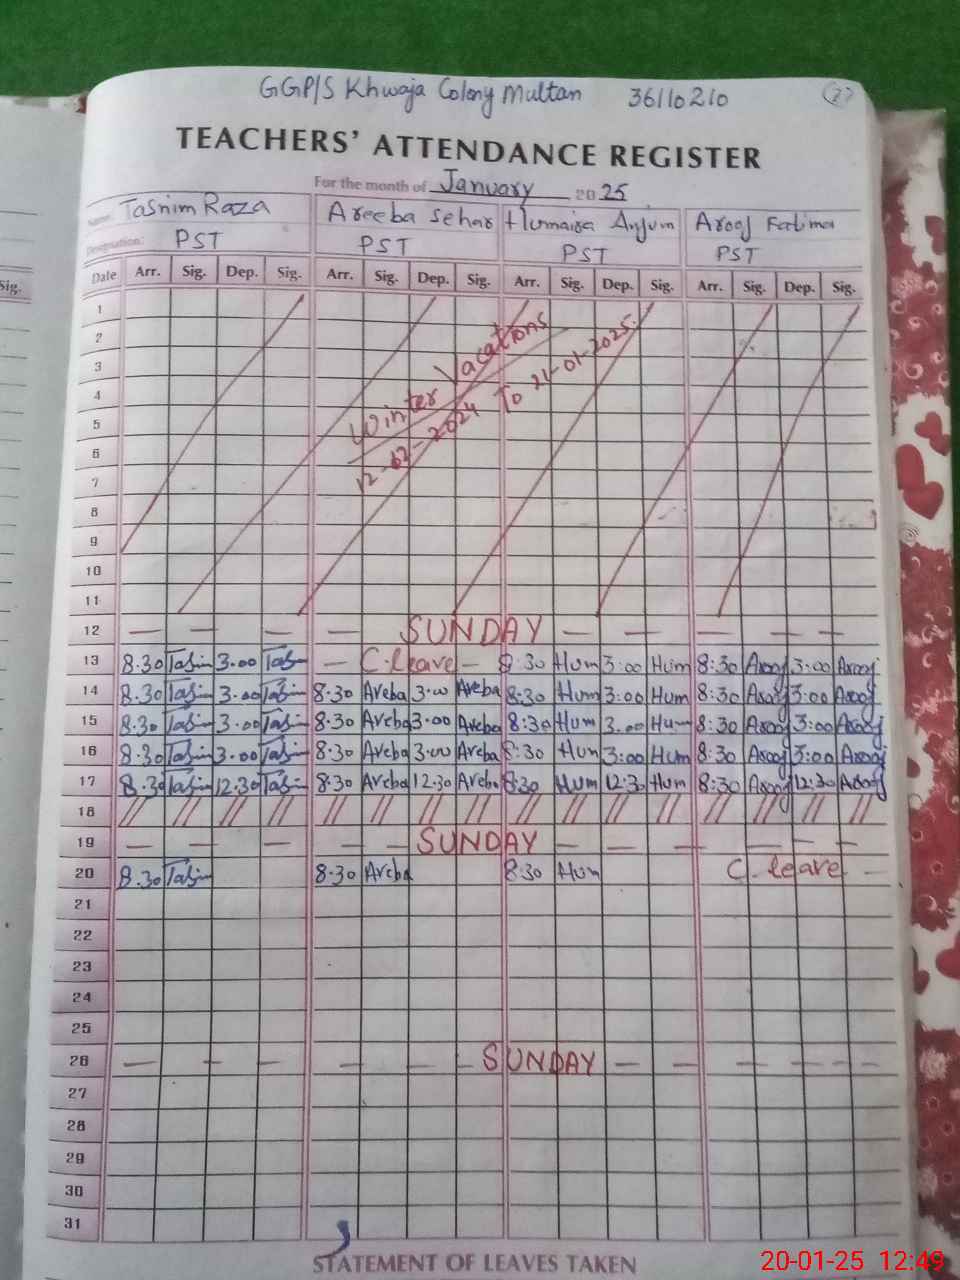 GGP/S Khwaja Colony Multan 36110210 27
TEACHERS' ATTENDANCE REGISTER
For the month of January 2025
Name: Tasnim Raza Areeba Sehar Humaira Anjum Arooj Fatima
Designation: PST PST PST PST
Date Arr. Sig. Dep. Sig. Arr. Sig. Dep. Sig. Arr. Sig. Dep. Sig. Arr. Sig. Dep. Sig.
Sig.
1
2
3
4
5
6
7
8
9
10
11
Winter Vacations
To 21-01-2025
12 — — — — SUNDAY — — — — —
13 8.30 Tasnim 3.00 Tasnim — C.leave — 8:30 Hum 3:00 Hum 8:30 Arooj 3:00 Arooj
14 8.30 Tasnim 3.00 Tasnim 8:30 Areba 3.00 Areba 8:30 Hum 3:00 Hum 8:30 Arooj 3:00 Arooj
15 8.30 Tasnim 3.00 Tasnim 8:30 Areba 3.00 Areba 8:30 Hum 3.00 Hum 8:30 Arooj 3:00 Arooj
16 8.30 Tasnim 3.00 Tasnim 8:30 Areba 3.00 Areba 8:30 Hum 3:00 Hum 8:30 Arooj 3:00 Arooj
17 8.30 Tasnim 12.30 Tasnim 8:30 Areba 12:30 Areba 8:30 Hum 12:30 Hum 8:30 Arooj 12:30 Arooj
18 // // // // // // // // // // // // // // // //
19 — — — — — — SUNDAY — — — — — — —
20 8.30 Tasnim 8:30 Areba 8:30 Hum C. leave —
21
22
23
24
25
26 — — — — — — SUNDAY — — — — — —
27
28
29
30
31
STATEMENT OF LEAVES TAKEN
20-01-25 12:49